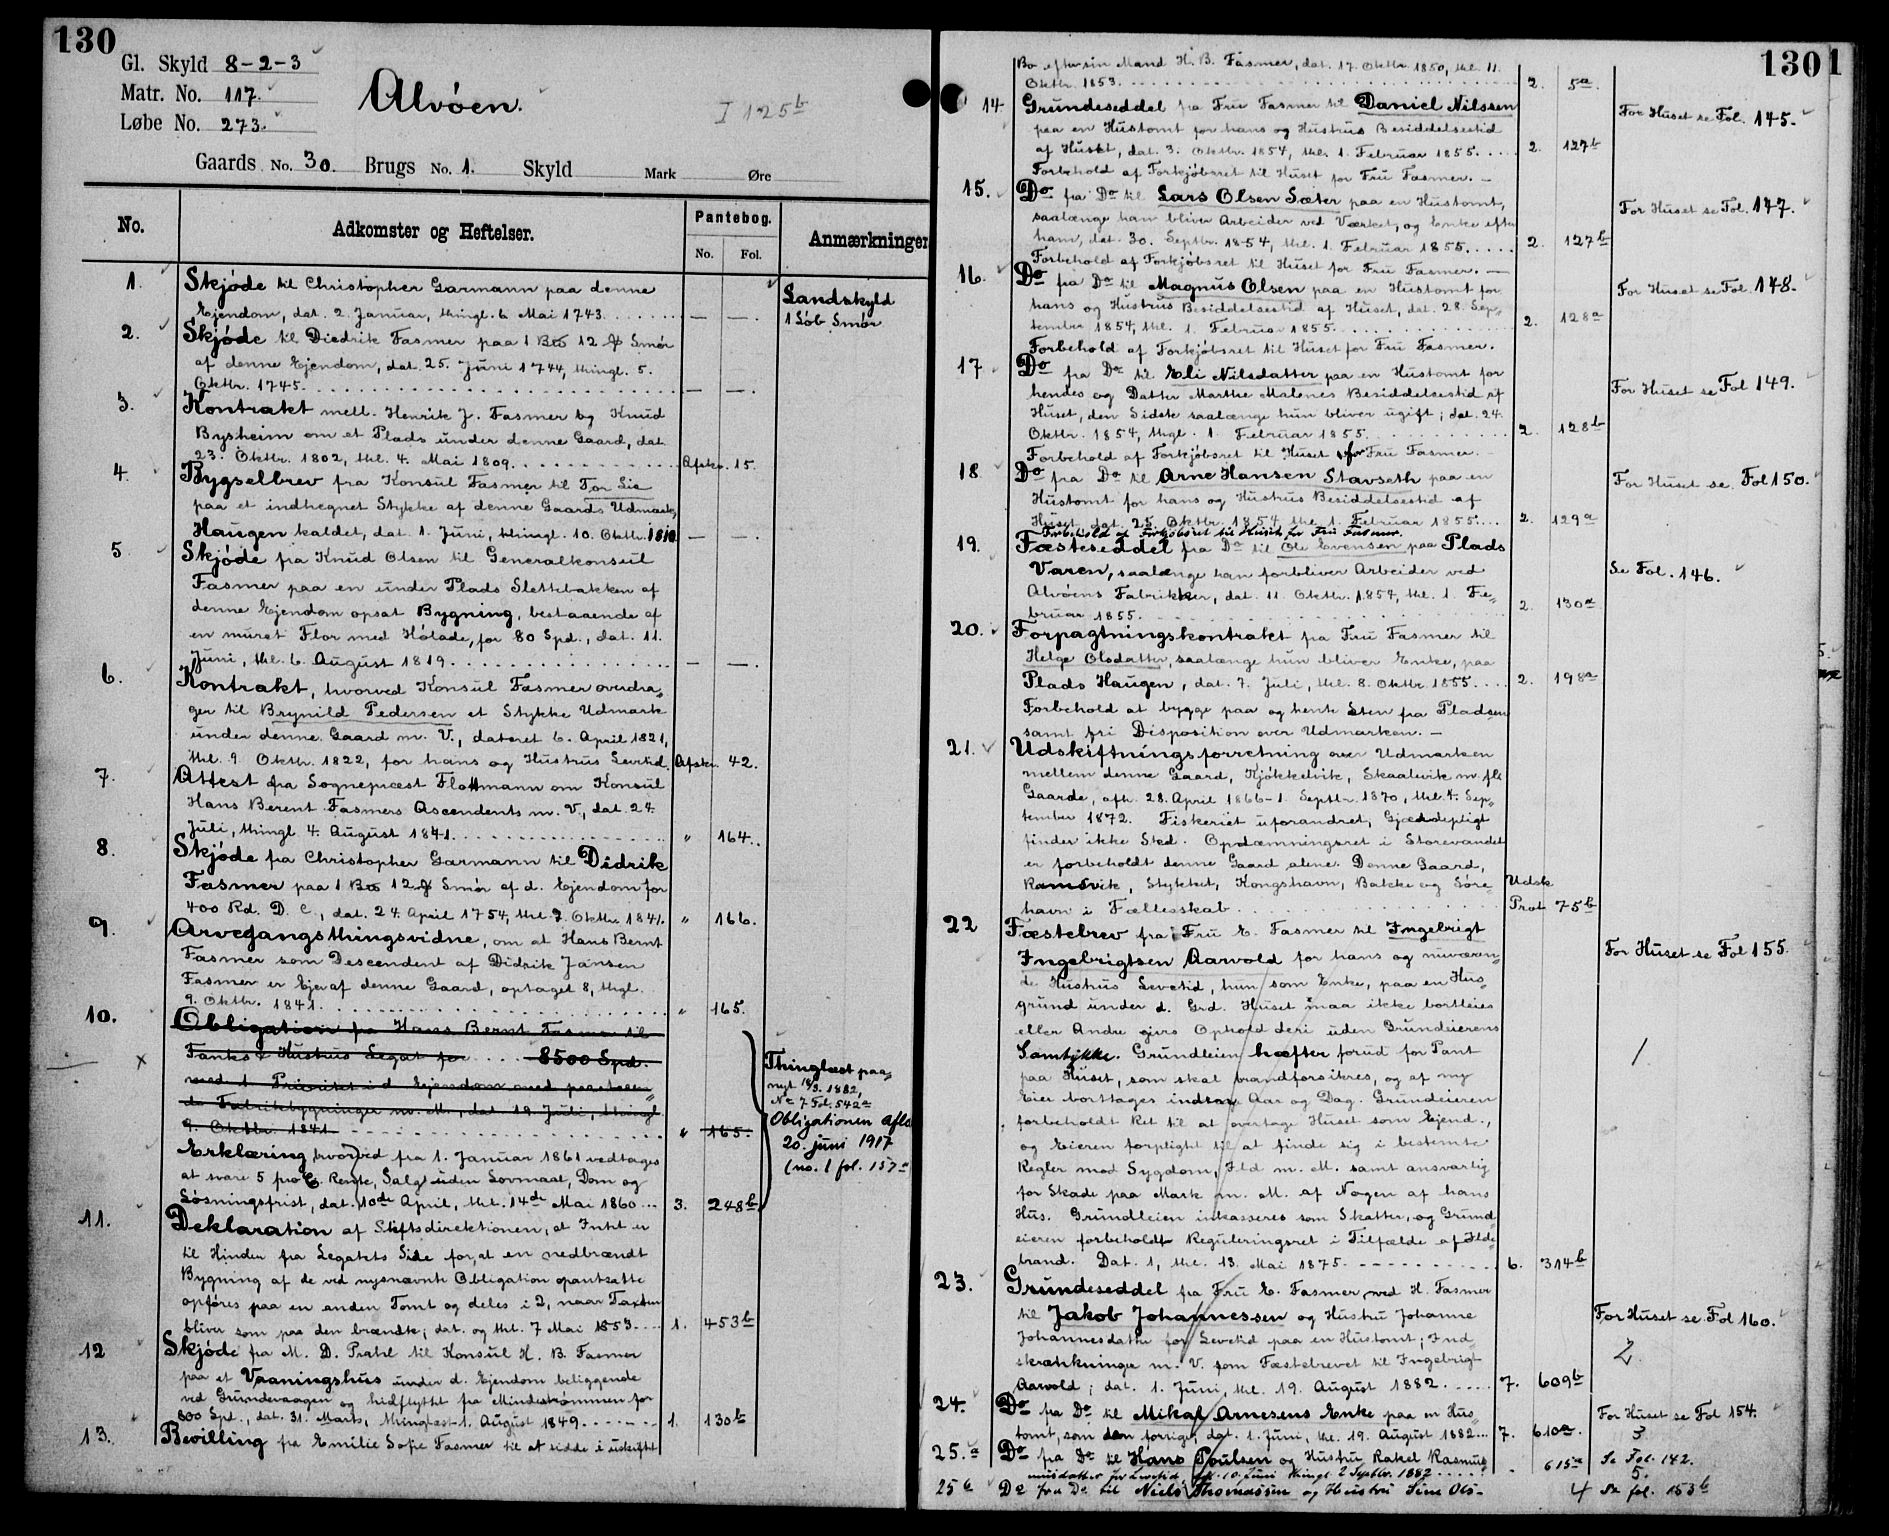 130
Gl. Skyld 8-2-3
Matr. No. 117.
Løbe No. 273.
Alvøen.
I 125b
Gaards No. 30. Brugs No. 1. Skyld Mark Øre
No.
Adkomster og Heftelser.
Pantebog.
No. Fol.
Anmærkninger
1. Skjøde til Christopher Garmann paa denne
Ejendom, dat. 2. Januar, thingl. 6 Mai 1743. — —
Landskyld
1 Løb Smør
2. Skjøde til Diedrik Fasmer paa 1 12 Smør
af denne Ejendom, dat. 25. Juni 1744, thingl. 5.
Oktbr. 1745. — —
3. Kontrakt mell. Henrik J. Fasmer og Knud
Bysheim om et Plads under denne Gaard, dat
23. Oktbr. 1802, thl. 4. Mai 1809. Afskr. 15.
4. Bygselbrev fra Konsul Fasmer til Tor
paa et indhegnet Stykke af denne Gaards Udmark,
Haugen kaldet, dat. 1. Juni, thingl. 10. Oktbr. 1810 — —
5 Skjøde fra Knud Olsen til Generalkonsul
Fasmer paa en under Plads Slettebakken af
denne Ejendom opsat Bygning, bestaaende af
en muret Flor med Hølade, for 80 Spd., dat. 11.
Juni, thl. 6. August 1819. — —
6. Kontrakt, hvorved Konsul Fasmer overdra„
ger til Brynild Pedersen et Stykke Udmark
under denne Gaard m. V., dateret 6. April 1821,
thl. 9. Oktbr. 1822, for hans og Hustrus Levetid. Afskr. 42.
7. Attest fra Sognepræst Flottmann om Konsul
Hans Berent Fasmers Ascendents m. V., dat. 24.
Juli, thingl. 4. August 1841. " 164.
8. Skjøde fra Christopher Garmann til Didrik
Fasmer paa 1 12 Smør af d. Ejendom for
400 Rd. D. C., dat. 24. April 1754, thl. 7. Oktbr. 1841. " 166.
9. Arvegangsthingsvidne, om at Hans Bernt
Fasmer som Descendent af Didrik Jansen
Fasmer er Ejer af denne Gaard, optaget 8, thgl.
9. Oktbr. 1841. " 165.
10. Obligation fra Hans Bernt Fasmer til
Fanks & Hustrus Legat for 8500 Spd.
med 1. Prioritet i d. Ejendom med paastaaen„
de Fabrikbygninger m. M., dat. 19. Juli, thingl.
9. Oktbr. 1841. " 165.
Thinglæst paa„
nyt 18/3. 1882,
No 7 Fol. 542a
Obligationen afl
20. juni 1917
(no. 1 fol. 157a
Erklæring, hvorved fra 1. Januar 1861 vedtages
at svare 5 pro C. Rente, Salg uden Lovmaal, Dom og
Løsningsfrist, dat. 10de April, thl. 14de Mai 1860 3. 248b
11. Deklaration af Stiftsdirektionen, at Intet er
til Hinder fra Legatets Side for, at en nedbrændt
Bygning af de ved nysnævnte Obligation opantsatte
opføres paa en anden Tomt og deles i 2, naar Taxten
bliver som paa den brændte; dat. og thl. 7 Mai 1853. 1. 453b
12 Skjøde fra M. D. Prahl til Konsul H. B. Fasmer
paa et Vaaningshus under d. Ejendom beliggende
ved Grundevaagen og hidflyttet fra Mindestrømmen for
800 Spd., dat. 31. Marts, thinglæst 1. August 1849. 1. 130b
13. Bevilling fra Emilie Sofie Fasmer til at sidde i uskiftet
1301
Bo efter sin Mand H. B. Fasmer, dat. 17. Oktbr. 1850, thl. 11.
Oktbr. 1853. 2. 5a
14 Grundeseddel fra Fru Fasmer til Daniel Nilssen
paa en Hustomt for hans og Hustrus Besiddelsestid
af Huset, dat. 3. Oktbr. 1854, thl. 1. Februar 1855. 2. 127b
Forbehold af Forkjøbsret til Huset for Fru Fasmer. —
For Huset se Fol. 145.
15. Do fra Do til Lars Olsen Sæter paa en Hustomt,
saalænge han bliver Arbeider ved Værket, og Enke efter
ham, dat. 30. Septbr. 1854, thl. 1. Februar 1855. 2. 127b
Forbehold af Forkjøbsret til Huset for Fru Fasmer. —
For Huset se Fol. 147.
16. Do fra Do til Magnus Olsen paa en Hustomt for
hans og Hustrus Besiddelsestid af Huset, dat. 28. Sep„
tember 1854, thl. 1. Februar 1855. 2. 128a
Forbehold af Forkjøbsret til Huset for Fru Fasmer.
For Huset se Fol. 148.
17 Do fra Do til Eli Nilsdatter paa en Hustomt for
hendes og Datter Marthe Malenes Besiddelsestid af
Huset, den Sidste saalænge hun bliver ugift; dat. 24.
Oktbr. 1854, thgl. 1. Februar 1855. 2. 128b
Forbehold af Forkjøbsret til Huset for Fru Fasmer.
For Huset se Fol 149.
18. Do fra Do til Arne Hansen Stavseth paa en
Hustomt for hans og Hustrus Besiddelsestid af
Huset, dat. 25. Oktbr. 1854, thl. 1. Februar 1855. 2. 129a
Forbehold af Forkjøbsret til Huset for Fru Fasmer.
For Huset se Fol 150.
19. Fæsteseddel fra Do til Ole Evensen paa Plads
Varen, saalænge han forbliver Arbeider ved
Alvøens Fabrikker, dat. 11. Oktbr. 1854, thl. 1. Fe„
bruar 1855. 2. 130a
Se Fol. 146.
20. Forpagtningskontrakt fra Fru Fasmer til
Helge Olsdatter, saalænge hun bliver Enke, paa
Plads Haugen, dat. 7. Juli, thl. 8. Oktbr. 1855. 2. 198a
Forbehold at bygge paa og hente Sten fra Pladsen
samt fri Disposition over Udmarken. —
21. Udskiftningsforretning over Udmarken
mellem denne Gaard, Kjøkkelvik, Skaalevik m. fl.
Gaarde, afh. 28. April 1866 - 1. Septbr. 1870, thl. 4. Sep„
tember 1872. Fiskeriet uforandret, Gjærdepligt
finder ikke Sted. Opdæmningsret i Storevandet
er forbeholdt denne Gaard alene. Denne Gaard,
Ramsvik, Stykket, Kongshavn, Bakke og Gøre
havn i Fællesskab Udsk. Prot. 75b
22 Fæstebrev fra Fru E. Fasmer til Ingebrigt
Ingebrigtsen Aarvold for hans og nuværen„
de Hustrus Levetid, hun som Enke, paa en Hus„
grund under d. Grd. Huset maa ikke bortleies
eller Andre givs Ophold deri uden Grundeierens
Samtykke. Grundleien hæfter forud for Pant
paa Huset, som skal brandforsikres, og af ny
Eier borttages inden Aar og Dag. Grundeieren
forbeholdt Ret til at overtage Huset som Ejend.,
og Eieren forpligtet til at finde sig i bestemte
Regler mod Sygdom, Ild m. M. samt ansvarlig
for Skade paa Mark m. M. af Nogen af hans
Hus. Grundleien inkasseres som Skatter, og Grund„
eieren forbeholdt Reguleringsret i Tilfælde af Ilde„
brand. Dat. 1, thl. 13. Mai 1875. 6. 314b
For Huset se Fol 155.
1
23. Grundeseddel fra Fru E. Fasmer ved H. Fasmer
til Jakob Johannessen og Hustru Johanne
Johannesdatter for Levetid paa en Hustomt; Ind„
skrænkninger m. V. som Fæstebrevet til Ingebrigt
Aarvold; dat. 1. Juni, thl. 19. August 1882. 7. 609b
For Huset se Fol 160.
2.
24. Do fra Do til Mikal Arnesens Enke paa en Hus„
tomt, som den forrige, dat. 1. Juni, thl. 19. August 1882. 7. 610a
For Huset se Fol 154.
3
25.a Do fra Do til Hans Poulsen og Hustru Rakel Rasmus
musdatter for Levetid, dat. 10. Juni thingl. 2 Septbr. 1882 615a
Se Fol. 142.
5.
25b Do fra Do til Niels Thomassen og Hustru Sine Ols-
4 Se fol. 153b